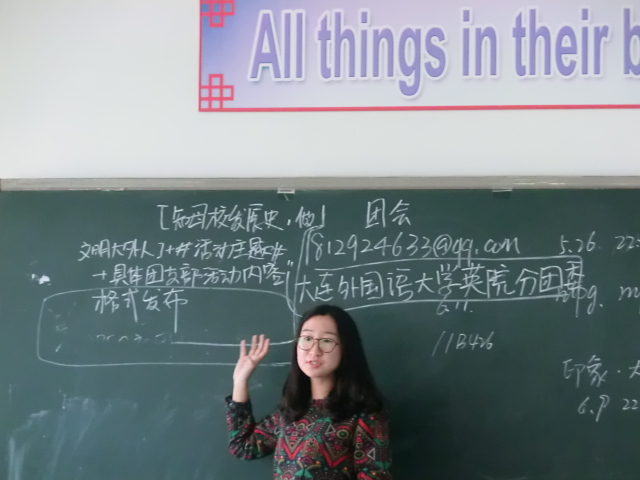 All things in their b
[知国校发展史,做] 团会
文明大外人]+#活动主题#
1812924633@qq.com
5.26. 22:
+具体团支部活动内容"
大连外国语大学英院分团委
格式发布
11B426
印象·大
6.9 22